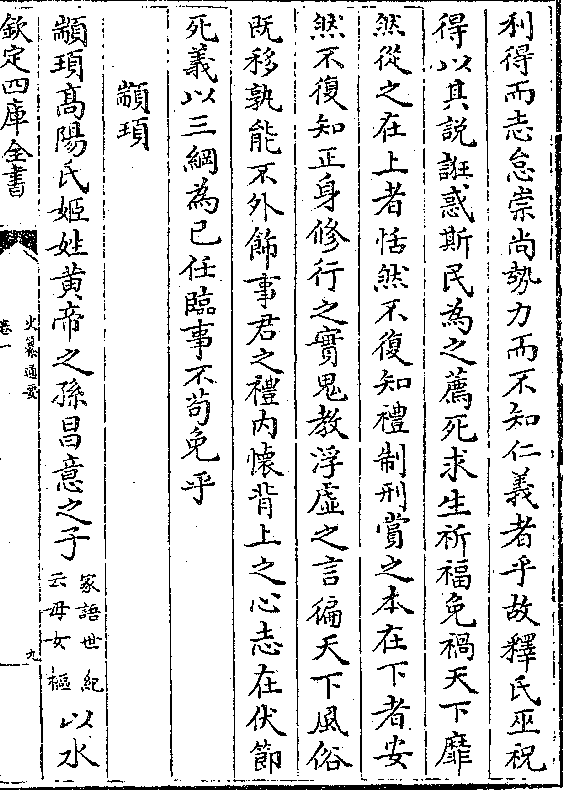 利得而志怠崇尚勢力而不知仁義者乎故釋氏巫祝
得以其説誑惑斯民為之薦死求生祈福免禍天下靡
然從之在上者恬然不復知禮制刑賞之本在下者安
然不復知正身修行之實鬼教浮虛之言徧天下風俗
既移孰能不外飾事君之禮内懷背上之心志在伏節
死義以三綱為已任臨事不苟免乎
顓頊
顓頊髙陽氏姬姓黄帝之孫昌意之子家語世紀云母女樞以水
欽定四庫全書
史纂通要
卷一
九